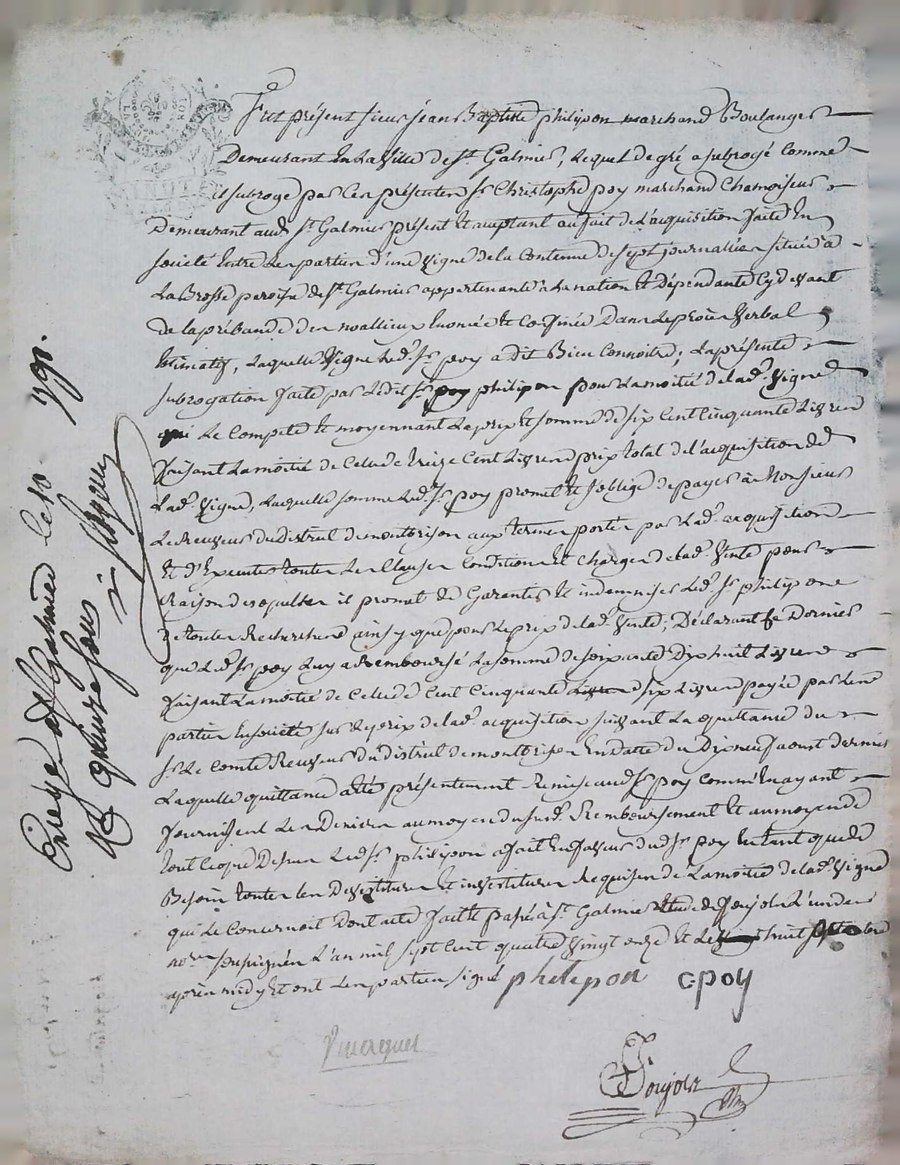 Fut présent sieur jean Baptiste philipon marchand Boulanger
Demeurant En La Ville de St. Galmier, Lequel de gré a subrogé comme
il subroge par Ces présentes Sr. Christophe poy marchand Chamoiseur
Demeurant aud. St. Galmier présent et acceptant au fait de L'acquisition faite En
société Entre Les parties d'une Vigne de la Contenue de sept journallées située à
La Brosse paroisse de St. Galmier appartenante à La nation et dépendante Cy devant
de la prébande des noallieux Enoncée et Confinée Dans Le procès Verbal
Estimatif, Laquelle Vigne Led. Sr. poy a dit Bien Connoitre; La présente
subrogation faite par Ledit Sr. philipon pour La moitié de lad. Vigne
qui Le Compete et moyennant Le prix et somme de six Cent Cinquante Livres
faisant La moitié de Celle de treize Cent Livres prix total de l'acquisition de
Lad. Vigne, Laquelle somme Led. Sr. poy promet et s'oblige de payer à Monsieur
Le Receveur du district de montbrison aux termes portés par Lad. acquisition
Et d'Executer toutes Les Clauses Conditions Et Charges de lad. Vente pour
Raison desquelles il promet de Garantir et indemniser Led. Sr. philipon
de toutes Recherches ainsy que pour Le prix de lad. Vente; Déclarant Ce Dernier
que Led. Sr. poy Luy a Remboursé La somme de soixante Dix huit Livres
faisant La moitié de Celle de Cent Cinquante six Livres payée par Les
parties En société sur Le prix de lad. acquisition suivant La quittance du
Sr. Le Comte Receveur du district de montbrison En date du Dix neuf aout dernier
Laquelle quittance a été présentement Remise aud. Sr. poy Comme Ayant
fournissent Les Deniers au moyen du susd. Remboursement et au moyen de
tout Ce que Dessus Led. Sr. philipon a fait En faveur dud. Sr. poy En tant que de
Besoin toutes Les Devestitures Et investitures Requises de La moitié de lad. Vigne
qui Le Concernoit Dont acte fait et passé à St. Galmier Etude de Soujols L'un des
nores. soussignés L'an mil sept Cent quatre Vingt onze Et Le huit septembre
après midy Et ont Les parties signé philipon C poy
Soujols
Enregé. à St. Galmier le 10 7bre 1791.
Rç quinze sous